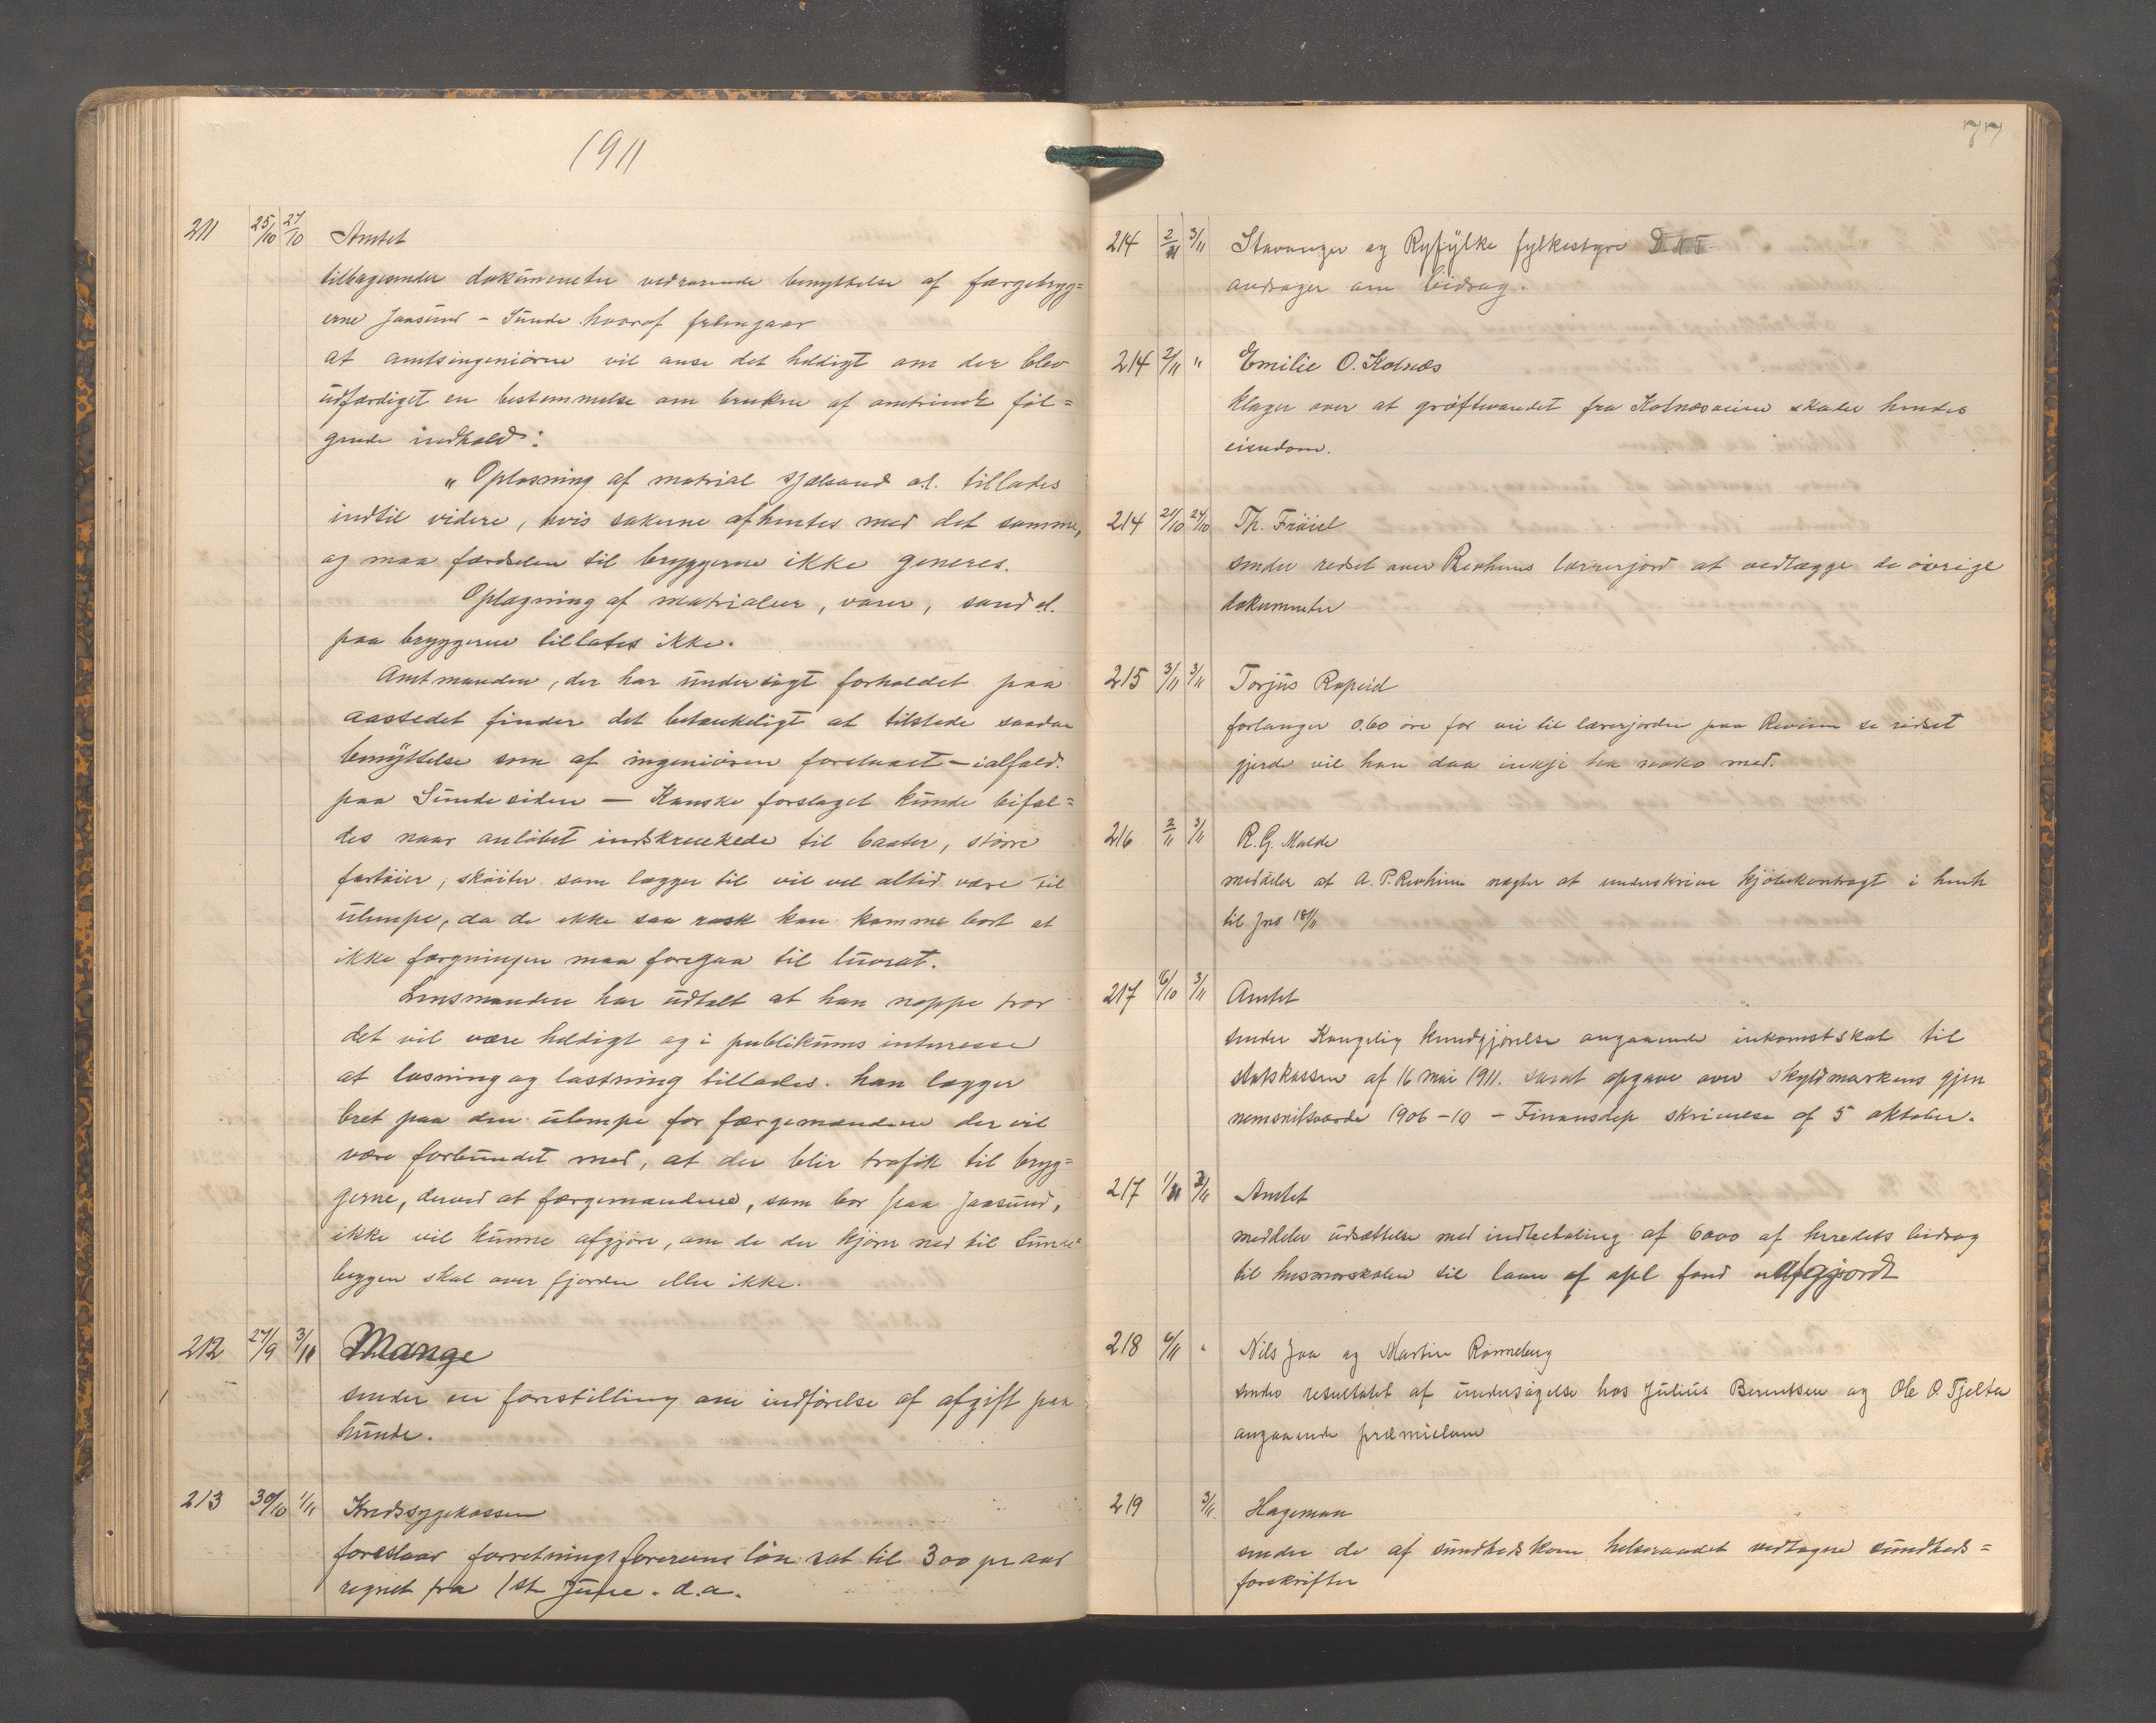 1911
211 25/10 27/10 Amtet
tilbagesender dokumenter vedrørende benyttelse af færgebryg=
erne Jaasund - Sunde hvoraf fremgaar
at amtsingeniøren vil anse det heldigt om der blev
udfærdiget en bestemmelse om bruken af omtrindt føl=
gende indhold:
"Oplosning af matrial skjælsand o.l. tillades
indtil videre, hvis sakerne afhentes med det samme,
og maa færdselen til bryggerne ikke generes.
Oplagning af matrialier, varer, sand ol.
paa bryggerne tillates ikke.
Amtmanden, der har undersøgt forholdet paa
aastedet finder det betænkeligt at tilstede saadan
benyttelse som af ingeniøren foreslaaet - ialfald
paa Sundesiden - Kanske forslaget kunde bifal=
des naar anløbet indskrenkede til baater, større
fartøier, skøiter som lægger til vil vel altid være til
ulempe, da de ikke saa rask kan komme bort at
ikke færgningen maa foregaa til tværs.
Lensmanden har udtalt at han neppe tror
det vil være heldigt og i publikums interesse
at losning og lastning tillades. han lægger
bret paa den ulempe for færgemændene der vil
være forbundet med, at der blir trafik til bryg=
gerne, derved at færgemændene, som bor paa Jaasund,
ikke vil kunne afgjøre, om de der kjøre ned til Sunde
bryggen skal over fjorden eller ikke.
212 27/9 3/11 Mange
sender en forestilling om indførelse af afgift paa
hunde.
213 30/10 1/11 Kredssygekassen
foreslaar forretningsførerens løn sat til 300 pr aar
regnet fra 1ste June d.a.
77
214 2/11 3/11 Stavanger og Ryfylke fylkestyre D.N.T.
andrager om bidrag.
214 2/11 " Emilie O. Kolnæs
klager over at grøftevandet fra Kolnæsveien skader hendes
eiendom.
214 21/10 24/10 Th. Frøiel
sender ridset over Revheims lærerjord at vedlægge de øvrige
dokumenter
215 3/11 3/11 Torjus Rapeid
forlanger 0.60 øre for vei til lærerjorden paa Reviem se ridset
gjerde vil han daa inkje ha noko med.
216 2/11 3/11 R. G. Malde
meddeler at A. P. Revheim nægter at underskrive kjøbekontragt i henh
til Jno 18/11
217 16/10 3/11 Amtet
sender Kongelig kundgjørelse angaaende inkomstskat til
statskassen af 16 mai 1911. samt opgave over skyldmarkens gjen
nemsnitsværdi 1906-10 - Finansdep skrivelse af 5 oktober.
217 1/11 3/11 Amtet
meddeler udsættelse med indbetaling af 6000 af herredets bidrag
til husmorskolen til laan af opl fond er afgjordt
218 6/11 " Nils Jaa og Martin Rønneberg
sender resultatet af undersøgelse hos Julius Berentsen og Ole O. Tjelta
angaaende præmielaan
219 3/11 Hageman
sender de af sundhedskom helseraadet vedtagne sundheds=
forskrifter